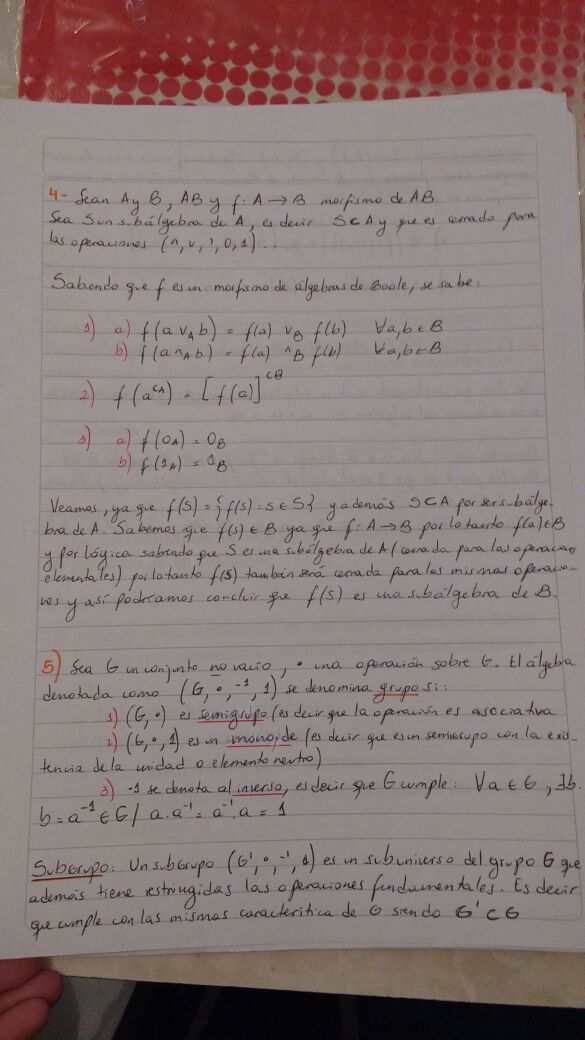 4- Sean A y B, AB y f: A → B morfismo de AB
Sea S un subálgebra de A, es decir S⊂A y que es cerrado para
las operaciones (∧, ∨, ', 0, 1)...
Sabendo que f es un morfismo de álgebras de Boole, se sabe:
1) a) f(a ∨A b) = f(a) ∨B f(b) ∀a,b ∈ B
b) f(a ∧A b) = f(a) ∧B f(b) ∀a,b ∈ B
2) f(a^CA) = [f(a)]^CB
3) a) f(0A) = 0B
b) f(1A) = 1B
Veamos, ya que f(S) = {f(s) : s ∈ S} y además S⊂A por ser subálge-
bra de A. Sabemos que f(s) ∈ B ya que f: A → B por lo tanto f(a) ∈ B
y por lógica sabendo que S es una subálgebra de A (cerrada para las operaciones
elementales) por lo tanto f(s) también será cerrada para las mismas operacio-
nes y así podríamos concluir que f(S) es una subálgebra de B.
5) Sea G un conjunto no vacío, ∘ una operación sobre G. El álgebra
denotada como (G, ∘, ⁻¹, 1) se denomina grupo si:
1) (G, ∘) es semigrupo (es decir que la operación es asociativa
2) (G, ∘, 1) es un monoide (es decir que es un semigrupo con la exis-
tencia de la unidad o elemento neutro)
3) -1 se denota al inverso, es decir que G cumple: ∀a ∈ G, ∃b.
b = a⁻¹ ∈ G / a.a⁻¹ = a⁻¹.a = 1
Subgrupo: Un subgrupo (G', ∘, ⁻¹, 1) es un subuniverso del grupo G que
además tiene restringidas las operaciones fundamentales. Es decir
que cumple con las mismas característica de G siendo G' ⊂ G